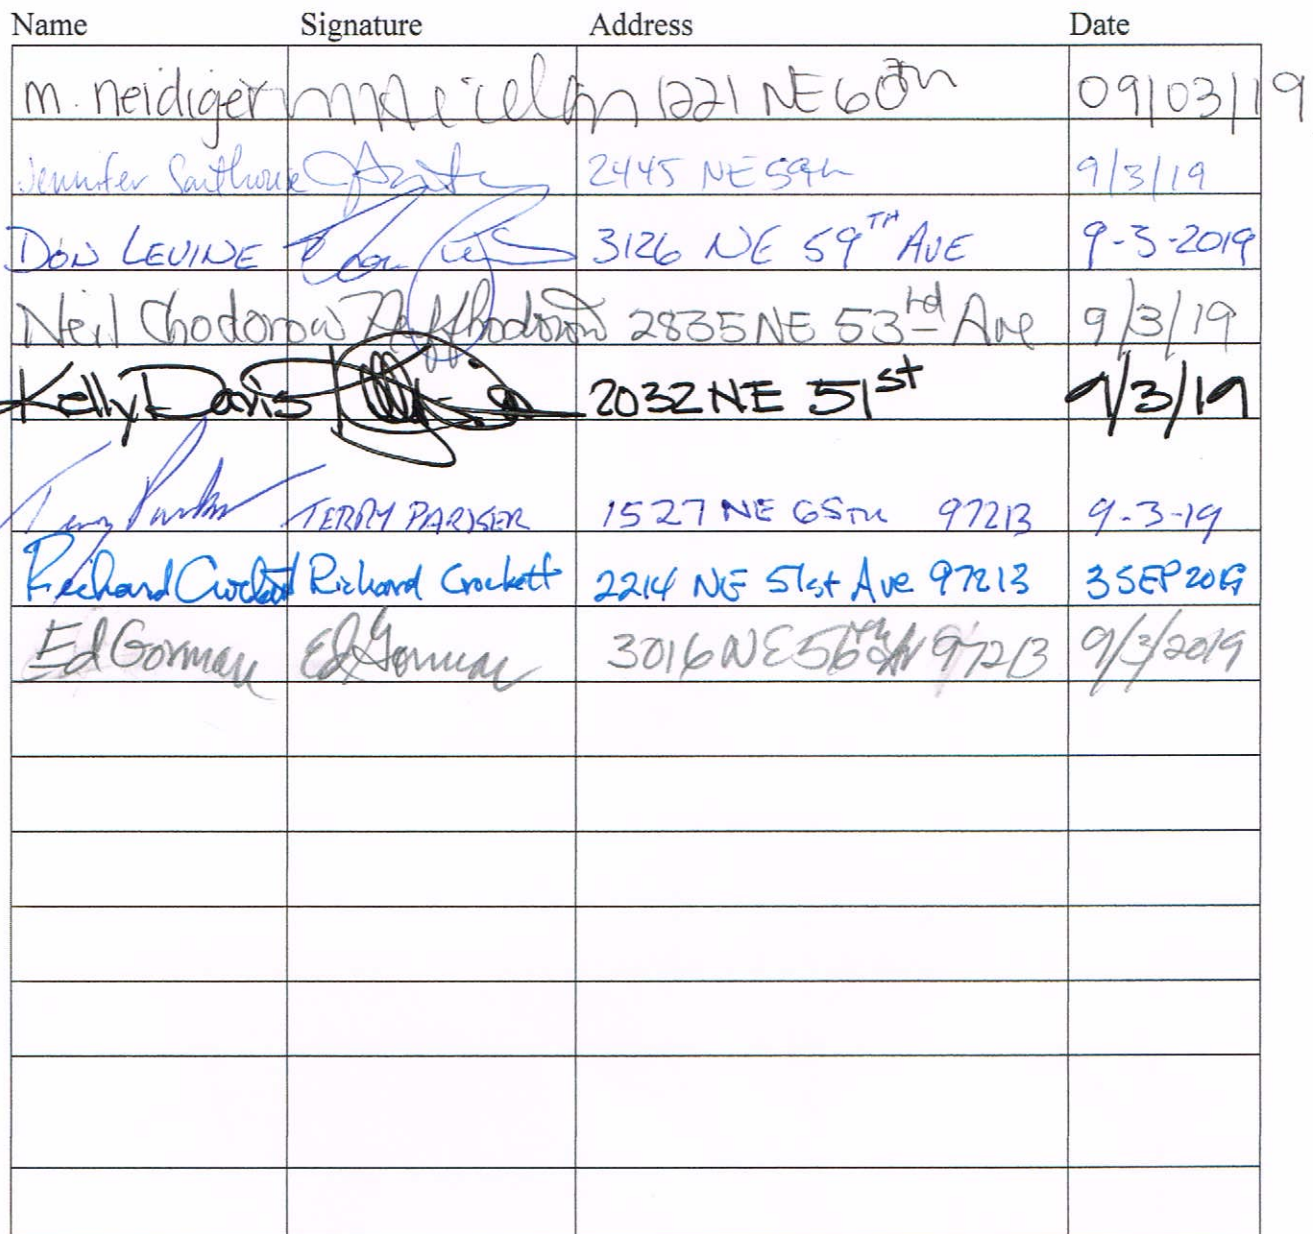 Name Signature Address Date
m. neidiger 1221 NE 60th 09/03/19
Jennifer 2445 NE 59th 9/3/19
DON LEVINE Don 3126 NE 59TH AVE 9-3-2019
Neil Chodorow N Chodorow 2835 NE 53rd Ave 9/3/19
Kelly Davis 2032 NE 51st 9/3/19
Terry Parker TERRY PARKER 1527 NE 65TH 97213 9-3-19
Richard Crockett Richard Crockett 2214 NE 51st Ave 97213 3 SEP 2019
Ed Gorman Ed Gorman 3016 NE 97213 9/3/2019